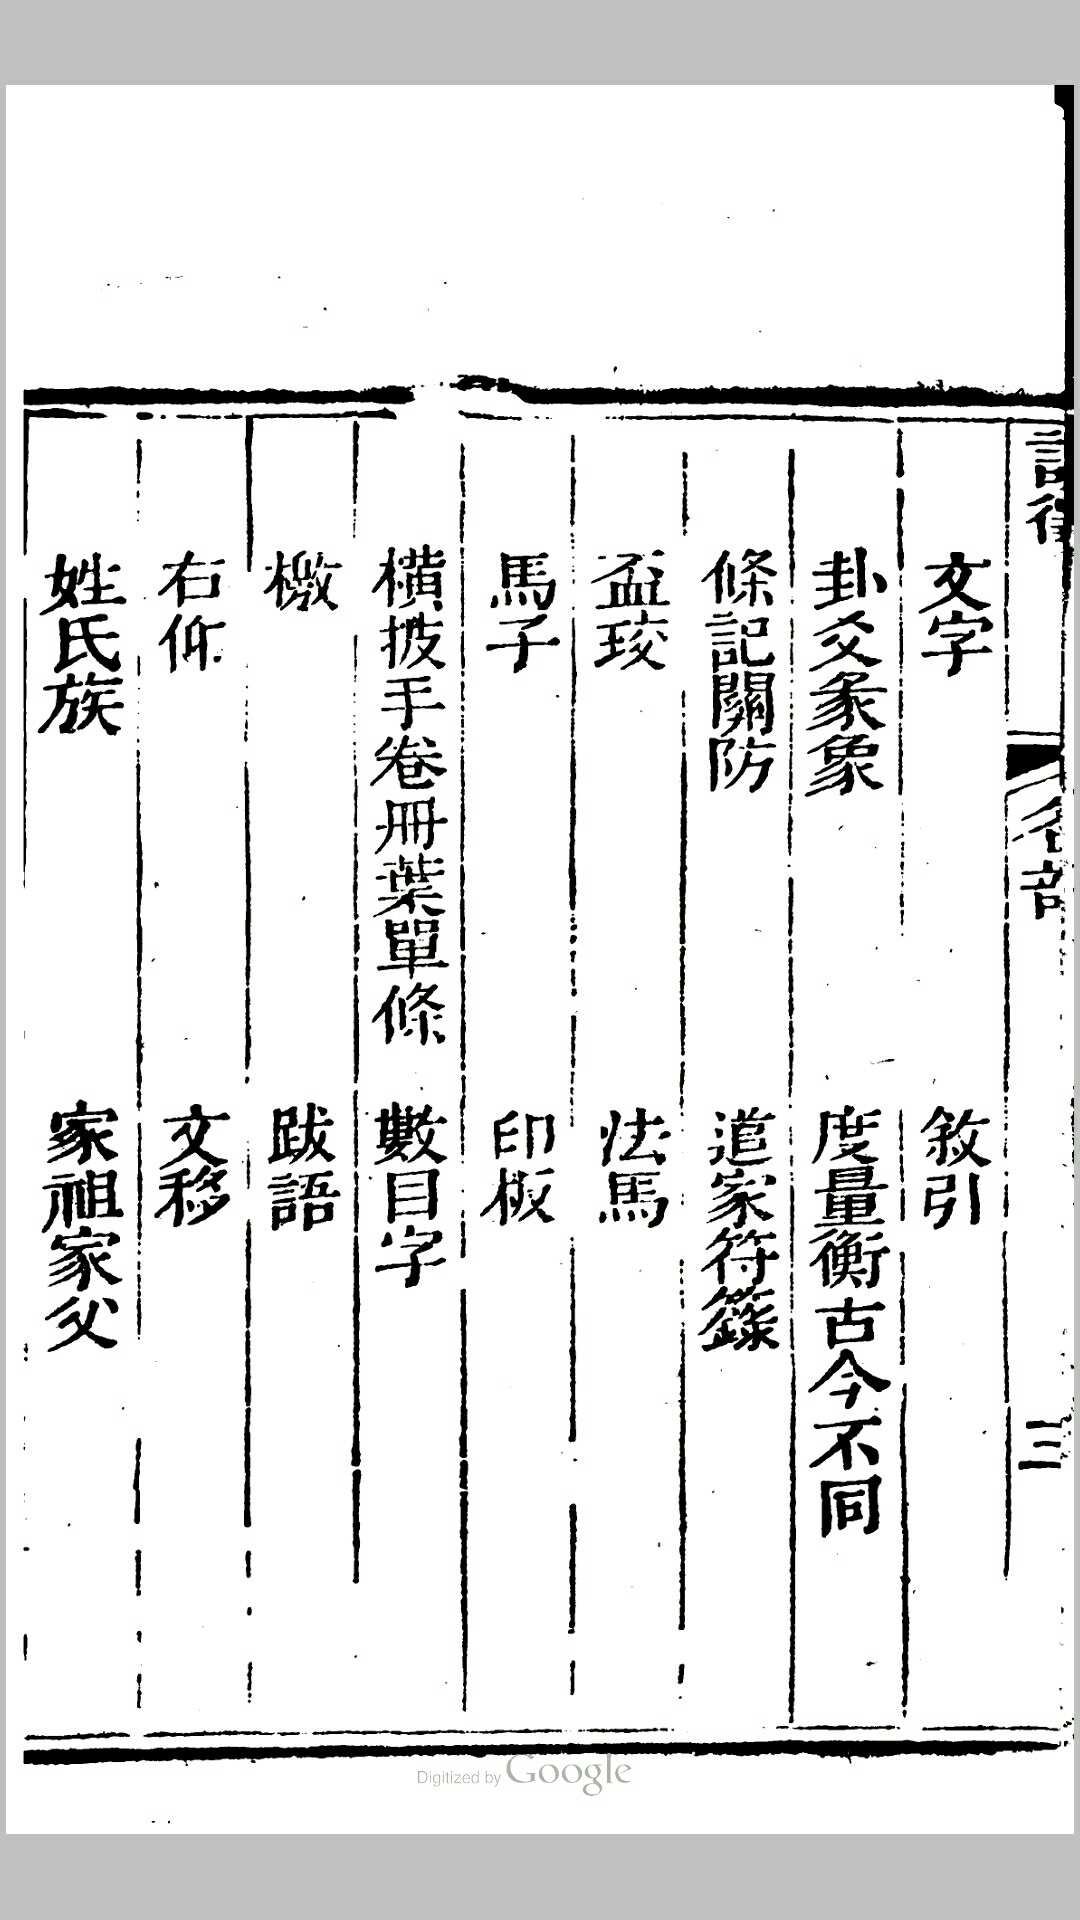 文字
敘引
卦爻彖象
度量衡古今不同
條記關防
道家符籙
盃珓
法馬
馬子
印板
橫披手卷冊葉單條
數目字
檄
跋語
右仰
文移
姓氏族
家祖家父
三
Digitized by Google